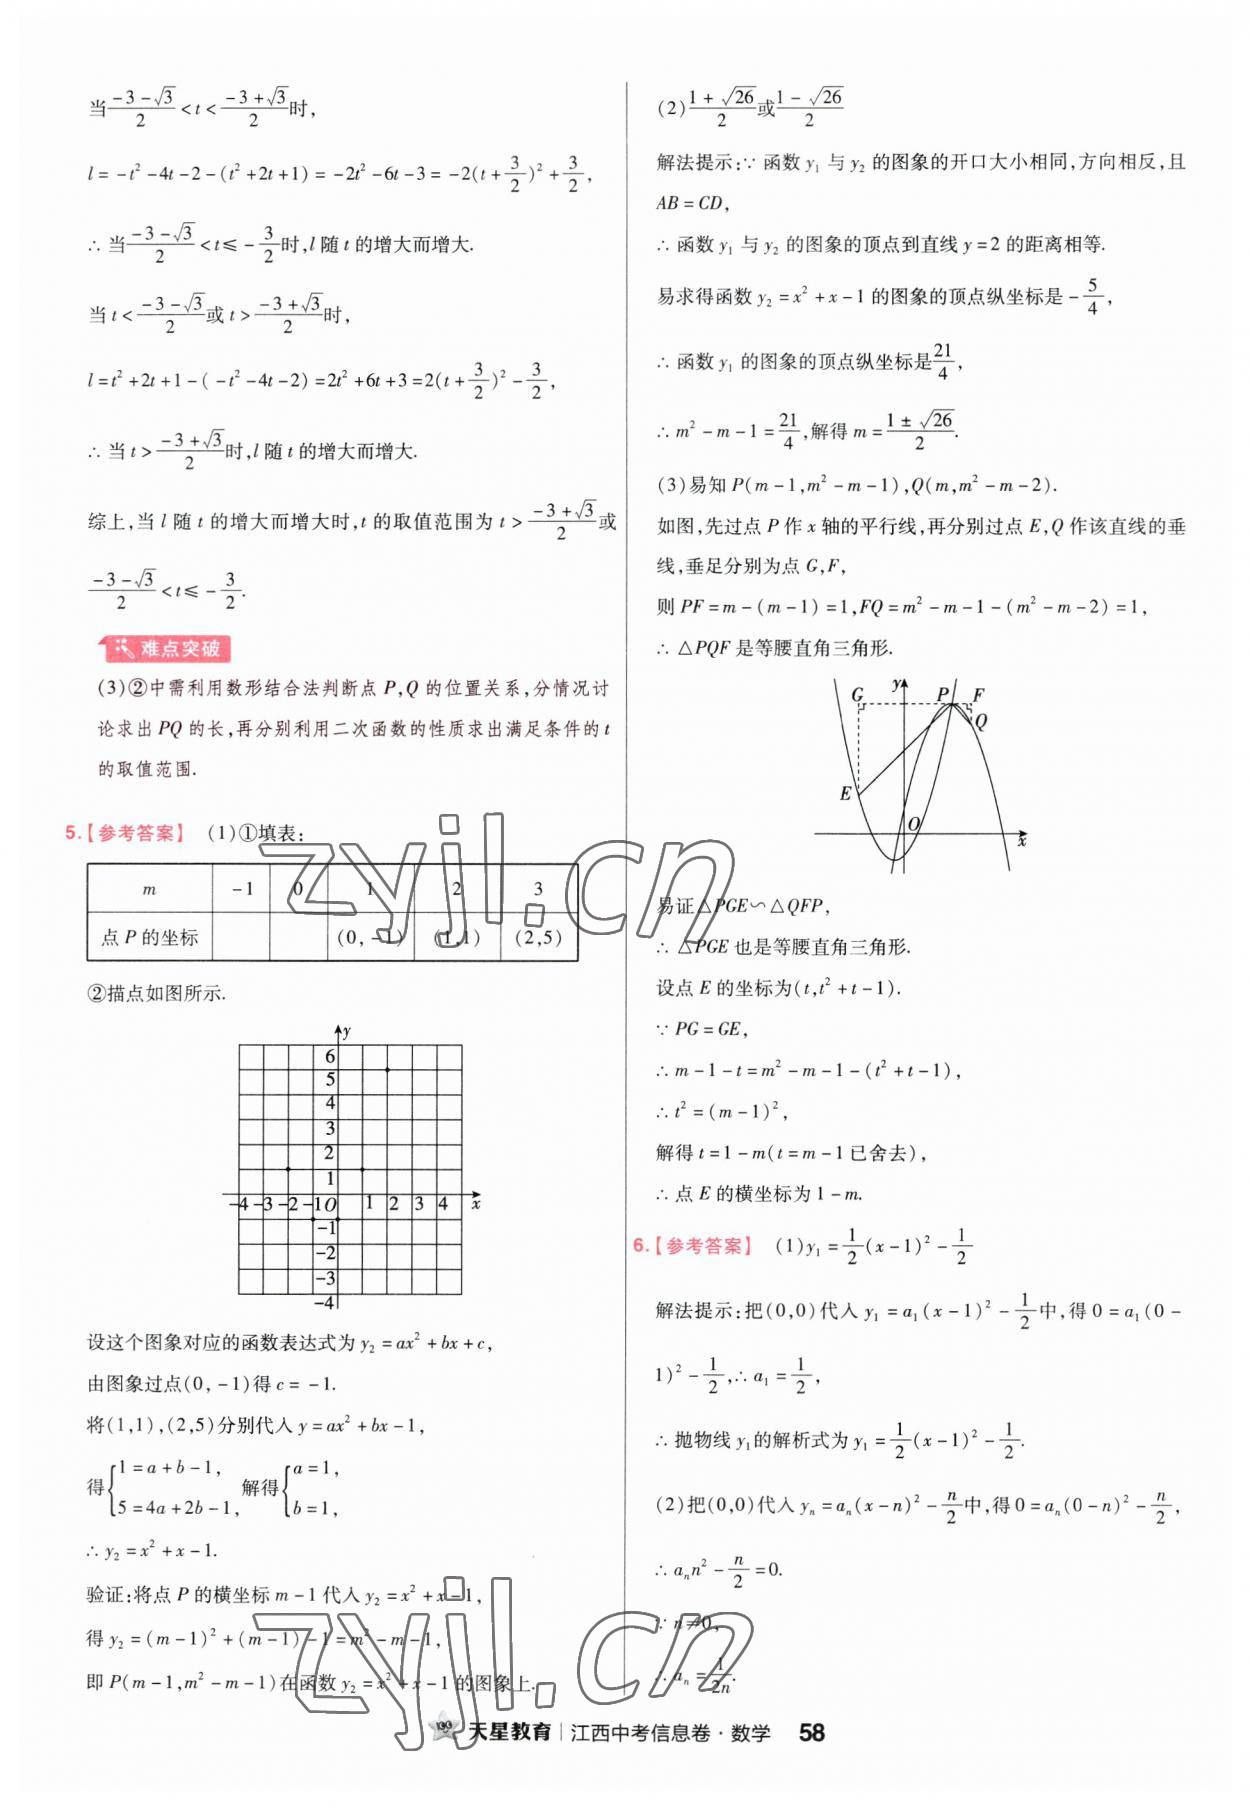 当(-3-√3)/2<t<(-3+√3)/2时,
l=-t²-4t-2-(t²+2t+1)=-2t²-6t-3=-2(t+3/2)²+3/2,
∴当(-3-√3)/2<t≤-3/2时,l随t的增大而增大.
当t<(-3-√3)/2或t>(-3+√3)/2时,
l=t²+2t+1-(-t²-4t-2)=2t²+6t+3=2(t+3/2)²-3/2,
∴当t>(-3+√3)/2时,l随t的增大而增大.
综上,当l随t的增大而增大时,t的取值范围为t>(-3+√3)/2或
(-3-√3)/2<t≤-3/2.
难点突破
(3)②中需利用数形结合法判断点P,Q的位置关系,分情况讨
论求出PQ的长,再分别利用二次函数的性质求出满足条件的t
的取值范围.
5.【参考答案】 (1)①填表:
m -1 0 1 2 3
点P的坐标 (0,-1) (1,1) (2,5)
②描点如图所示.
y
6
5
4
3
2
1
-4 -3 -2 -1 O 1 2 3 4 x
-1
-2
-3
-4
设这个图象对应的函数表达式为y₂=ax²+bx+c,
由图象过点(0,-1)得c=-1.
将(1,1),(2,5)分别代入y=ax²+bx-1,
得{1=a+b-1, 5=4a+2b-1, 解得{a=1, b=1,
∴y₂=x²+x-1.
验证:将点P的横坐标m-1代入y₂=x²+x-1,
得y₂=(m-1)²+(m-1)-1=m²-m-1,
即P(m-1,m²-m-1)在函数y₂=x²+x-1的图象上.
(2)(1+√26)/2或(1-√26)/2
解法提示:∵函数y₁与y₂的图象的开口大小相同,方向相反,且
AB=CD,
∴函数y₁与y₂的图象的顶点到直线y=2的距离相等.
易求得函数y₂=x²+x-1的图象的顶点纵坐标是-5/4,
∴函数y₁的图象的顶点纵坐标是21/4,
∴m²-m-1=21/4,解得m=(1±√26)/2.
(3)易知P(m-1,m²-m-1),Q(m,m²-m-2).
如图,先过点P作x轴的平行线,再分别过点E,Q作该直线的垂
线,垂足分别为点G,F,
则PF=m-(m-1)=1,FQ=m²-m-1-(m²-m-2)=1,
∴△PQF是等腰直角三角形.
G y P F
Q
E
O x
易证△PGE∽△QFP,
∴△PGE也是等腰直角三角形.
设点E的坐标为(t,t²+t-1).
∵PG=GE,
∴m-1-t=m²-m-1-(t²+t-1),
∴t²=(m-1)²,
解得t=1-m(t=m-1已舍去),
∴点E的横坐标为1-m.
6.【参考答案】 (1)y₁=1/2(x-1)²-1/2
解法提示:把(0,0)代入y₁=a₁(x-1)²-1/2中,得0=a₁(0-
1)²-1/2,∴a₁=1/2,
∴抛物线y₁的解析式为y₁=1/2(x-1)²-1/2.
(2)把(0,0)代入yₙ=aₙ(x-n)²-n/2中,得0=aₙ(0-n)²-n/2,
∴aₙn²-n/2=0.
∵n≠0,
∴aₙ=1/2n.
zyjl.cn
zyjl.cn
天星教育|江西中考信息卷·数学 58